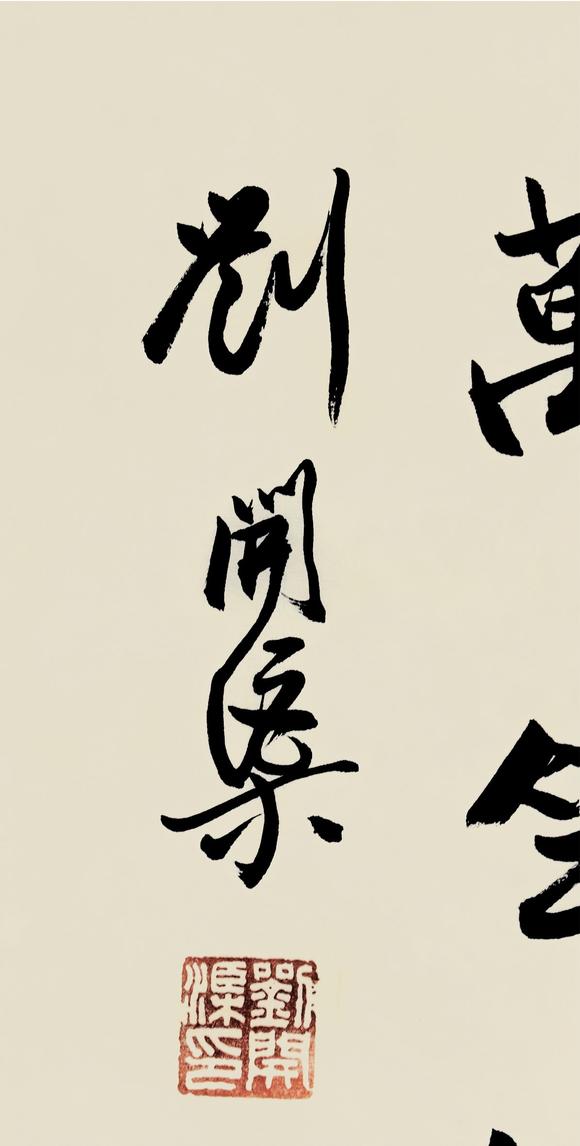 萬
劉開渠
劉開渠印